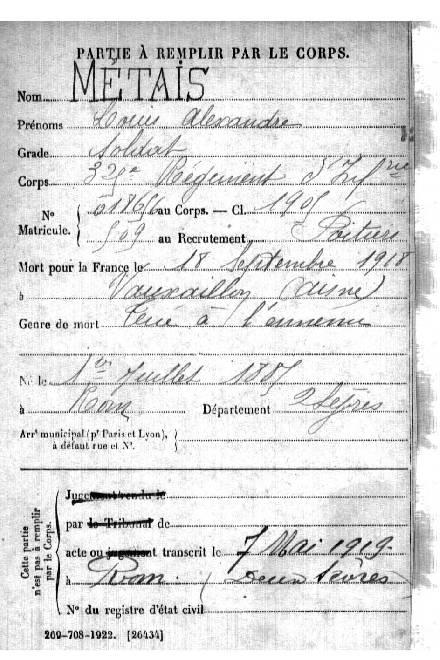 PARTIE À REMPLIR PAR LE CORPS.
Nom MÉTAIS
Prénoms Louis Alexandre
Grade Soldat
Corps 320e Régiment d'Infrie
N° Matricule. { 01866 au Corps. — Cl. 1905
509 au Recrutement Poitiers
Mort pour la France le 18 Septembre 1918
à Vauxaillon (Aisne)
Genre de mort Tué à l'ennemi
Né le 1er Juillet 1885
à Rom Département 2 Sèvres
Arrt municipal (pr Paris et Lyon),
à défaut rue et N°.
Cette partie n'est pas à remplir par le Corps.
Jugement rendu le
par le Tribunal de
acte ou jugement transcrit le 7 Mai 1919.
à Rom (Deux Sèvres)
N° du registre d'état civil
209-708-1922. [26434]